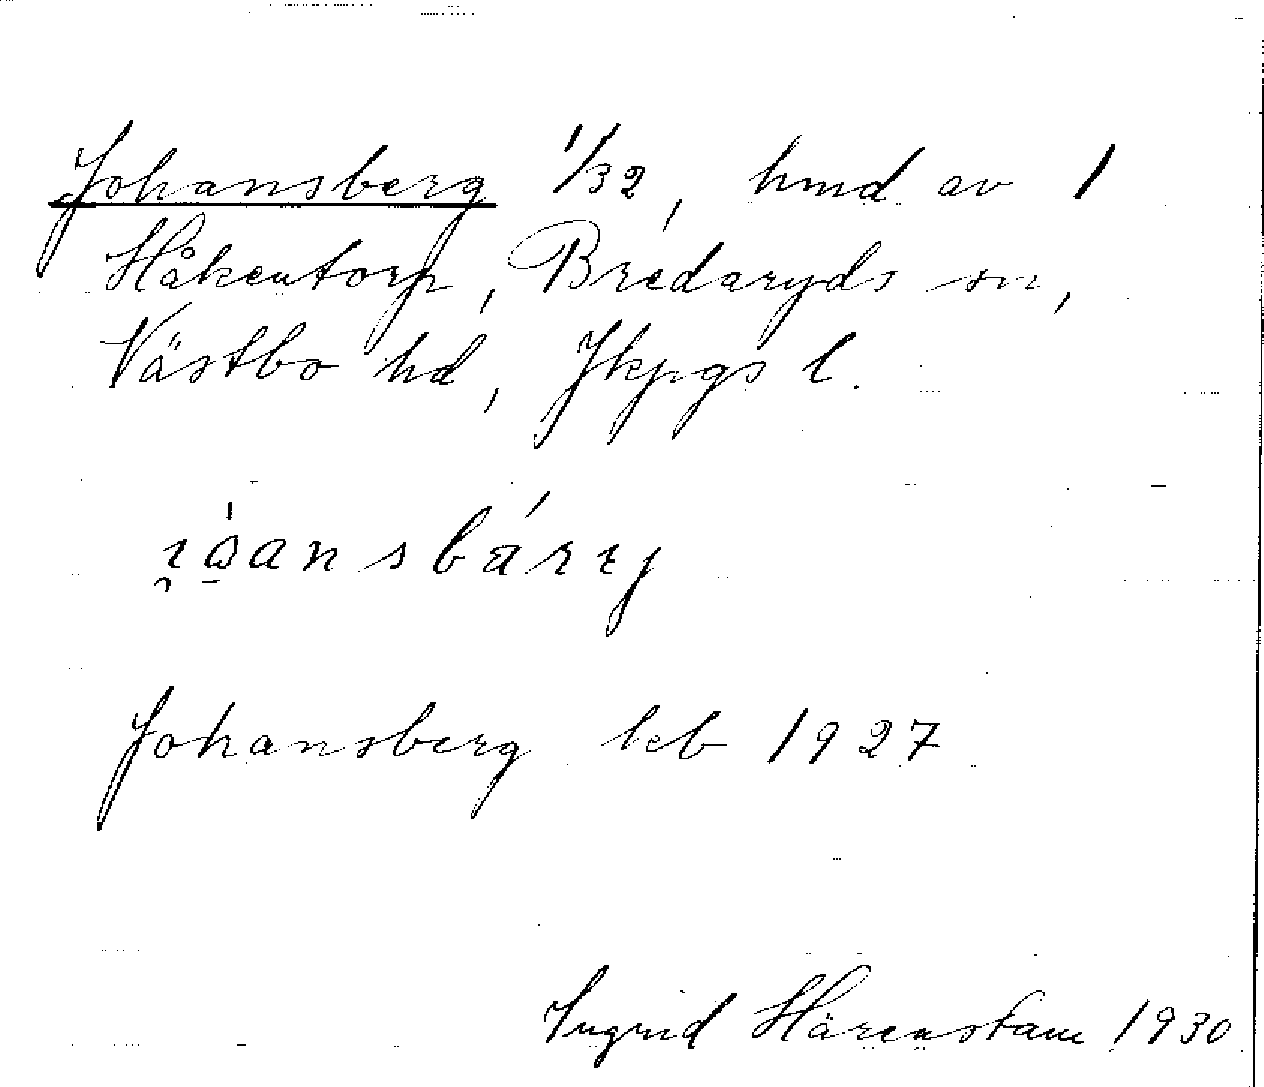 Johansberg 1/32, hmd av 1
Håkentorp, Bredaryds sn,
Västbo hd, Jkpgs l.
Johansberg leb 1927
Ingrid Härenstam 1930